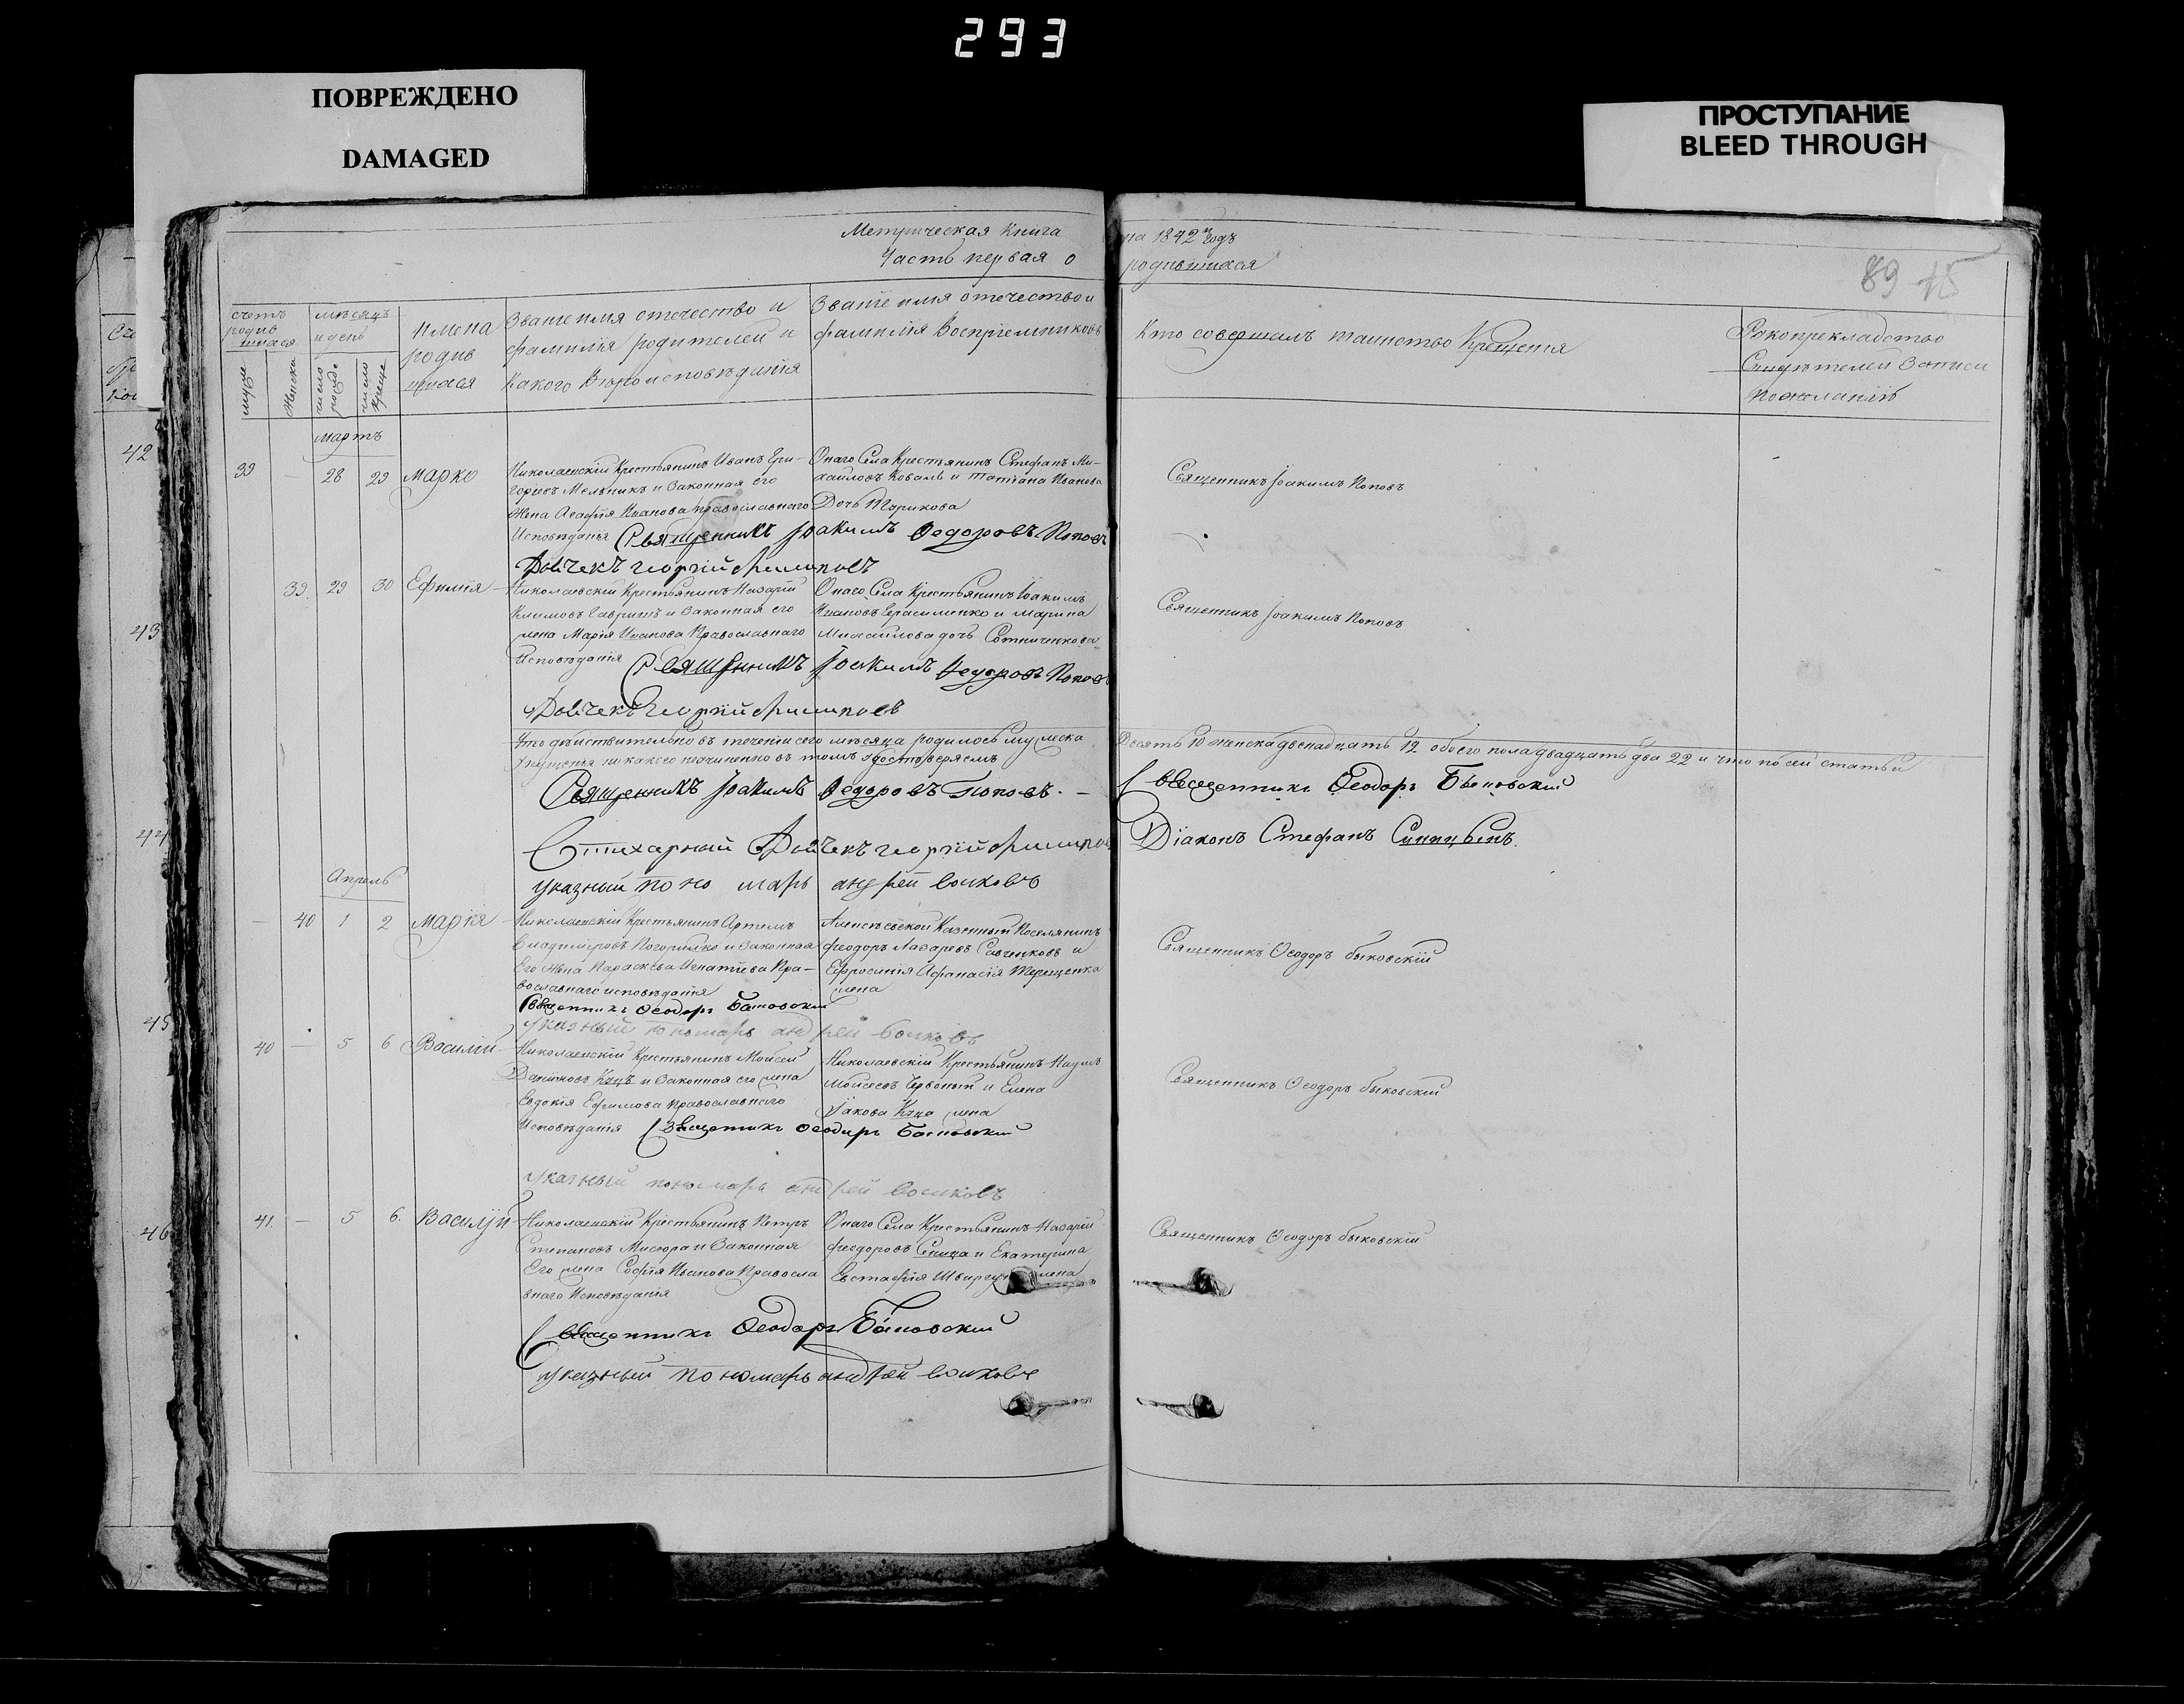 293
ПОВРЕЖДЕНО
DAMAGED
ПРОСТУПАНИЕ
BLEED THROUGH
Метрическая Книга
на 1842 годъ
Часть первая о
родившихся
89 45
счетъ родившихся
мѣсяцъ и день
Имена родившихся
Званіе имя отечество и фамилія родителей и какого Вѣроисповѣданія
Званіе имя отечество и фамилія Воспріемниковъ
Кто совершалъ таинство Крещенія
Рукоприкладство Свидѣтелей Записи по желанію
муж
женска
число рожде
число креще
мартъ
39 — 28 29 Марко
Николаевскій Крестьянинъ Иванъ Гри-
горіевъ Мельникъ и Законная его
Жена Агафія Иванова православнаго
Исповѣданія
Онаго Села Крестьянинъ Стефанъ Ми-
хаиловъ Коваль и Татіана Иванова
Дочь
Священникъ Іоакимъ Поповъ
Священникъ Іоакимъ Федоровъ Поповъ
Дьячекъ георгій Филиповъ
39 29 30 Ефимія
Николаевскій Крестьянинъ Назарій
Климовъ и Законная его
жена Марія Иванова Православнаго
Исповѣданія
Онаго Села Крестьянинъ Іоакимъ
Ивановъ Герасименко и Марина
Михаилова дочь Сотниченкова
Священникъ Іоакимъ Поповъ
Священникъ Іоакимъ Федоровъ Поповъ
Дьячекъ Георгій Филиповъ
Что дѣйствительно въ теченіи сего мѣсяца родилось мужеска
Десять 10 женска двенадцать 12 обоего пола двадцать два 22 и что по сей статьи
упущенія никакого неучиненно въ томъ удостоверяемъ
Священникъ Іоакимъ Федоровъ Поповъ. —
Священникъ Феодоръ Быковскій
Стихарный Дьячекъ георгій Филипов
Діаконъ Стефанъ Синицынъ.
указный пономарь андрей волковъ
Апрель
— 40 1 2 Марія
Николаевскій Крестьянинъ Артемъ
Владиміровъ и Законная
Его жена Параскева Игнатіева Пра-
вославнаго исповѣданія
Казенный Поселянинъ
Феодоръ Лазаревъ Савченковъ и
Ефросинія Афанасія Терещенка
жена
Священникъ Феодоръ быковскій
Священникъ Феодоръ Быковскій
указный пономарь андрей волковъ
40 — 5 6 Василій
Николаевскій Крестьянинъ Моисей
Даниловъ Куцъ и Законная его жена
Евдокія Ефимова православнаго
Исповѣданія
Николаевскій Крестьянинъ Наумъ
Моисеевъ Червоный и Елена
Іакова Куца жена
Священникъ Феодоръ быковскій
Священникъ Феодоръ Быковскій
указный пономарь андрей волковъ
41. — 5 6. Василій
Николаевскій Крестьянинъ Петръ
Степановъ Мисюра и Законная
Его жена Софія Иванова Правосла
внаго Исповѣданія
Онаго Села Крестьянинъ Назарій
Феодоровъ Спица и Екатерина
Евстафія жена
Священникъ Феодоръ быковскій
Священникъ Феодоръ Быковскій
указный пономарь андрей волковъ
42
43
44
45
46